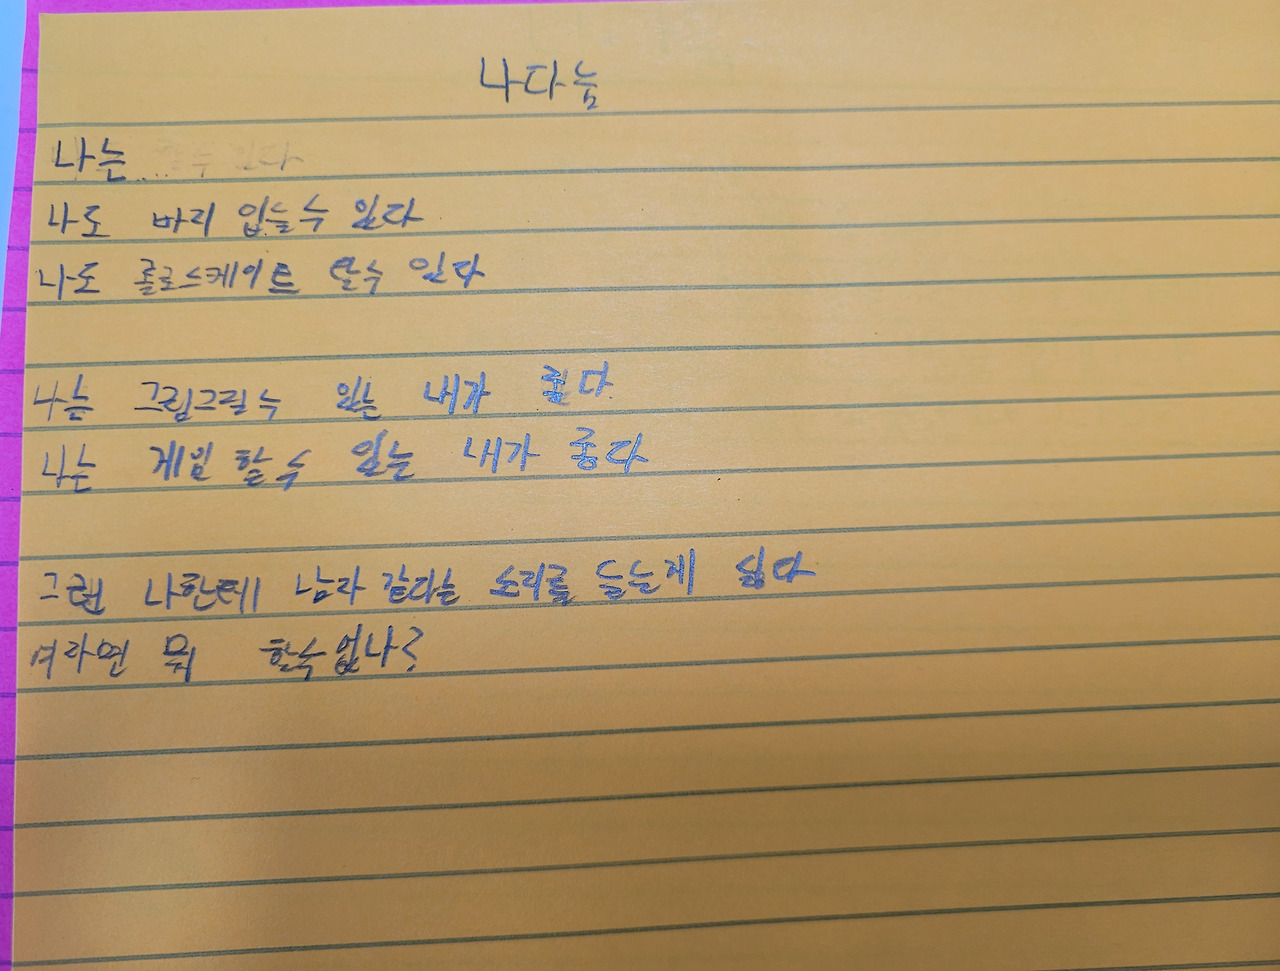 나다늠
나는
나도 바리 입을수 있다
나도 롤로스케이트 탈수 있다
나는 그림그릴수 있는 내가 좋다
나는 게임 할수 있는 내가 좋다
그런 나한테 남자 같다는 소리를 듣는게 싫다
여라면 뭐 할수없나?